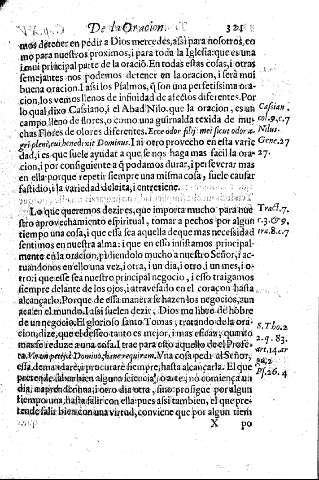 De la Oracion. 321
mos detener en pedir a Dios mercedes, assi para nosotros, co
mo para nuestros proximos, i para toda la Iglesia: que es una
i mui principal parte de la oraciō. En todas estas cosas, i otras
semejantes nos podemos detener en la oracion, i será mui
buena oracion. I assi los Psalmos, q̃ son una perfetissima ora-
cion, los vemos llenos de infinidad de afectos diferentes. Por
lo qual dixo Cassiano, i el Abad Nilo que la oracion, es un
campo lleno de flores, o como una guirnalda texida de mu
chas flores de olores diferentes. Ecce odor filij mei sicut odor a-
gri pleni, cui benedixit Dominus. I ai otro provecho en esta varie
dad, i es que suele ayudar a que se nos haga mas facil la ora-
cion, i por consiguiente a q̃ podamos durar, i perseverar mas
en ella porque repetir siempre una misma cosa, suele causar
fastidio, i la variedad deleita, i entretiene.
Cassian.
col. 9. c. 7
Nilus.
Gene. 27
27.
Lo que queremos dezir es, que importa mucho para nue
stro aprovechamiento espiritual, tomar a pechos por algun
tiempo una cosa, i que essa sea aquella de que mas necesidad
sentimos en nuestra alma: i que en essa insistamos principal-
mente en la oracion, pidiendolo mucho a nuestro Señor, i ac-
tuandonos en ello una vez, i otra, i un dia, i otro, i un mes, i o-
tro: i que esse sea nuestro principal negocio, i esso traigamos
siempre delante de los ojos, i atravesado en el coraçon hasta
alcançarlo. Porque de essa manera se hazen los negocios, aun
aca en el mundo. I assi suelen dezir, Dios me libre de hōbre
de un negocio. El glorioso santo Tomas, tratando de la ora-
cion, dize, que el desseo tanto es mejor, i mas eficaz, quanto
mas se reduze a una cosa. I trae para esto aquello de el Profe-
ta. Unam petij à Domino, hanc requiram. Una cosa pedi al Señor,
essa demandarè, i procurarè siempre, hasta alcançarla. El que
pretende saber bien alguna sciencia, o arte, no comiença un
dia a aprender una, i otro dia otra, sino prosigue por algun
tiempo una, hasta salir con ella pues assi tambien, el que pre-
tende salir bien con una virtud, conviene que por algun tiem
Tract. 7.
r. 3. & 9.
tra. 8. c. 7
S. Tho. 2
2. q. 83.
art. 14. ar
Ps. 26. 4
X po